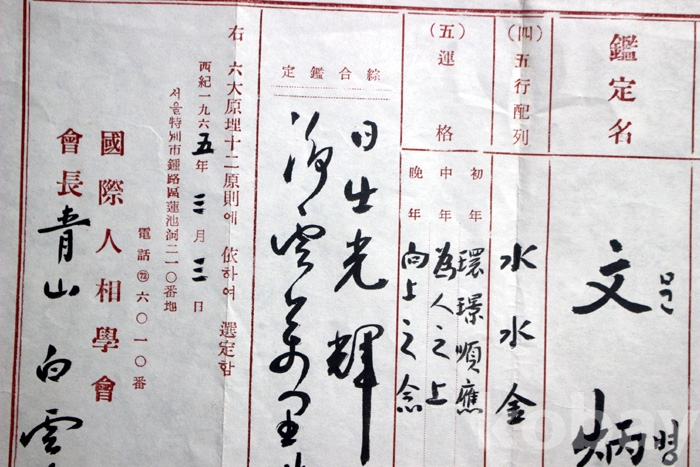 鑑定名
文 문
炳 병
(四)五行配列
水水金
(五)運格
初年 環環順應
中年 為人之上
晩年 向上之念
綜合鑑定
日出光輝
浮雲萬里
右 六大原理十二原則에 依하여 選定함
西紀一九六五年 三月 三日
서울特別市鍾路區蓮池洞二一〇番地
電話㉒六〇一〇番
國際人相學會
會長 青山 白雲
kobay